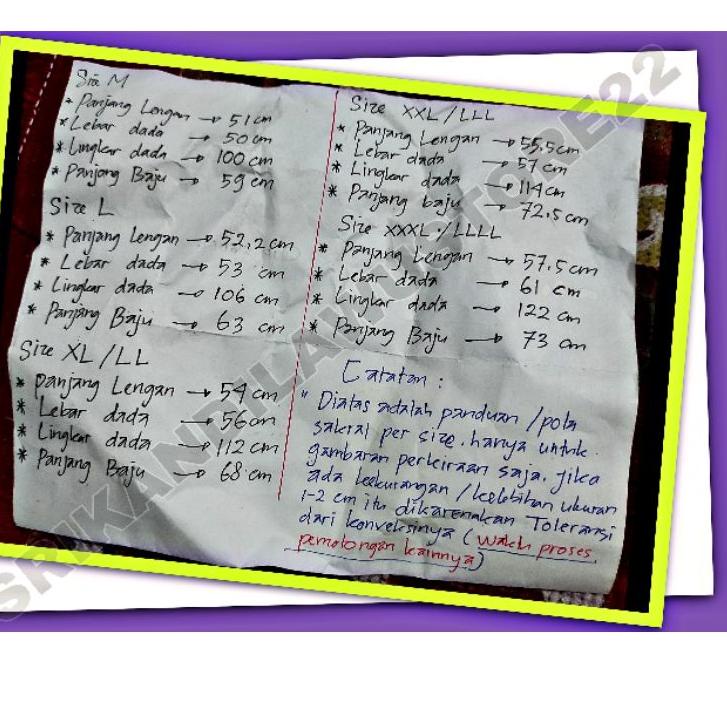 Size M
* Panjang Lengan → 51 cm
* Lebar dada → 50 cm
* Lingkar dada → 100 cm
* Panjang Baju → 59 cm
Size L
* Panjang Lengan → 52,2 cm
* Lebar dada → 53 cm
* Lingkar dada → 106 cm
* Panjang Baju → 63 cm
Size XL / LL
* Panjang Lengan → 54 cm
* Lebar dada → 56 cm
* Lingkar dada → 112 cm
* Panjang Baju → 68 cm
Size XXL / LLL
* Panjang Lengan → 55,5 cm
* Lebar dada → 57 cm
* Lingkar dada → 114 cm
* Panjang baju → 72,5 cm
Size XXXL / LLLL
* Panjang Lengan → 57,5 cm
* Lebar dada → 61 cm
* Lingkar dada → 122 cm
* Panjang Baju → 73 cm
Catatan :
" Diatas adalah panduan / pola
sakral per size. hanya untuk
gambaran perkiraan saja. Jika
ada kekurangan / kelebihan ukuran
1-2 cm itu dikarenakan Toleransi
dari konveksinya ( waktu proses
pemotongan kainnya )
SRIKANDILAWUSTORE22